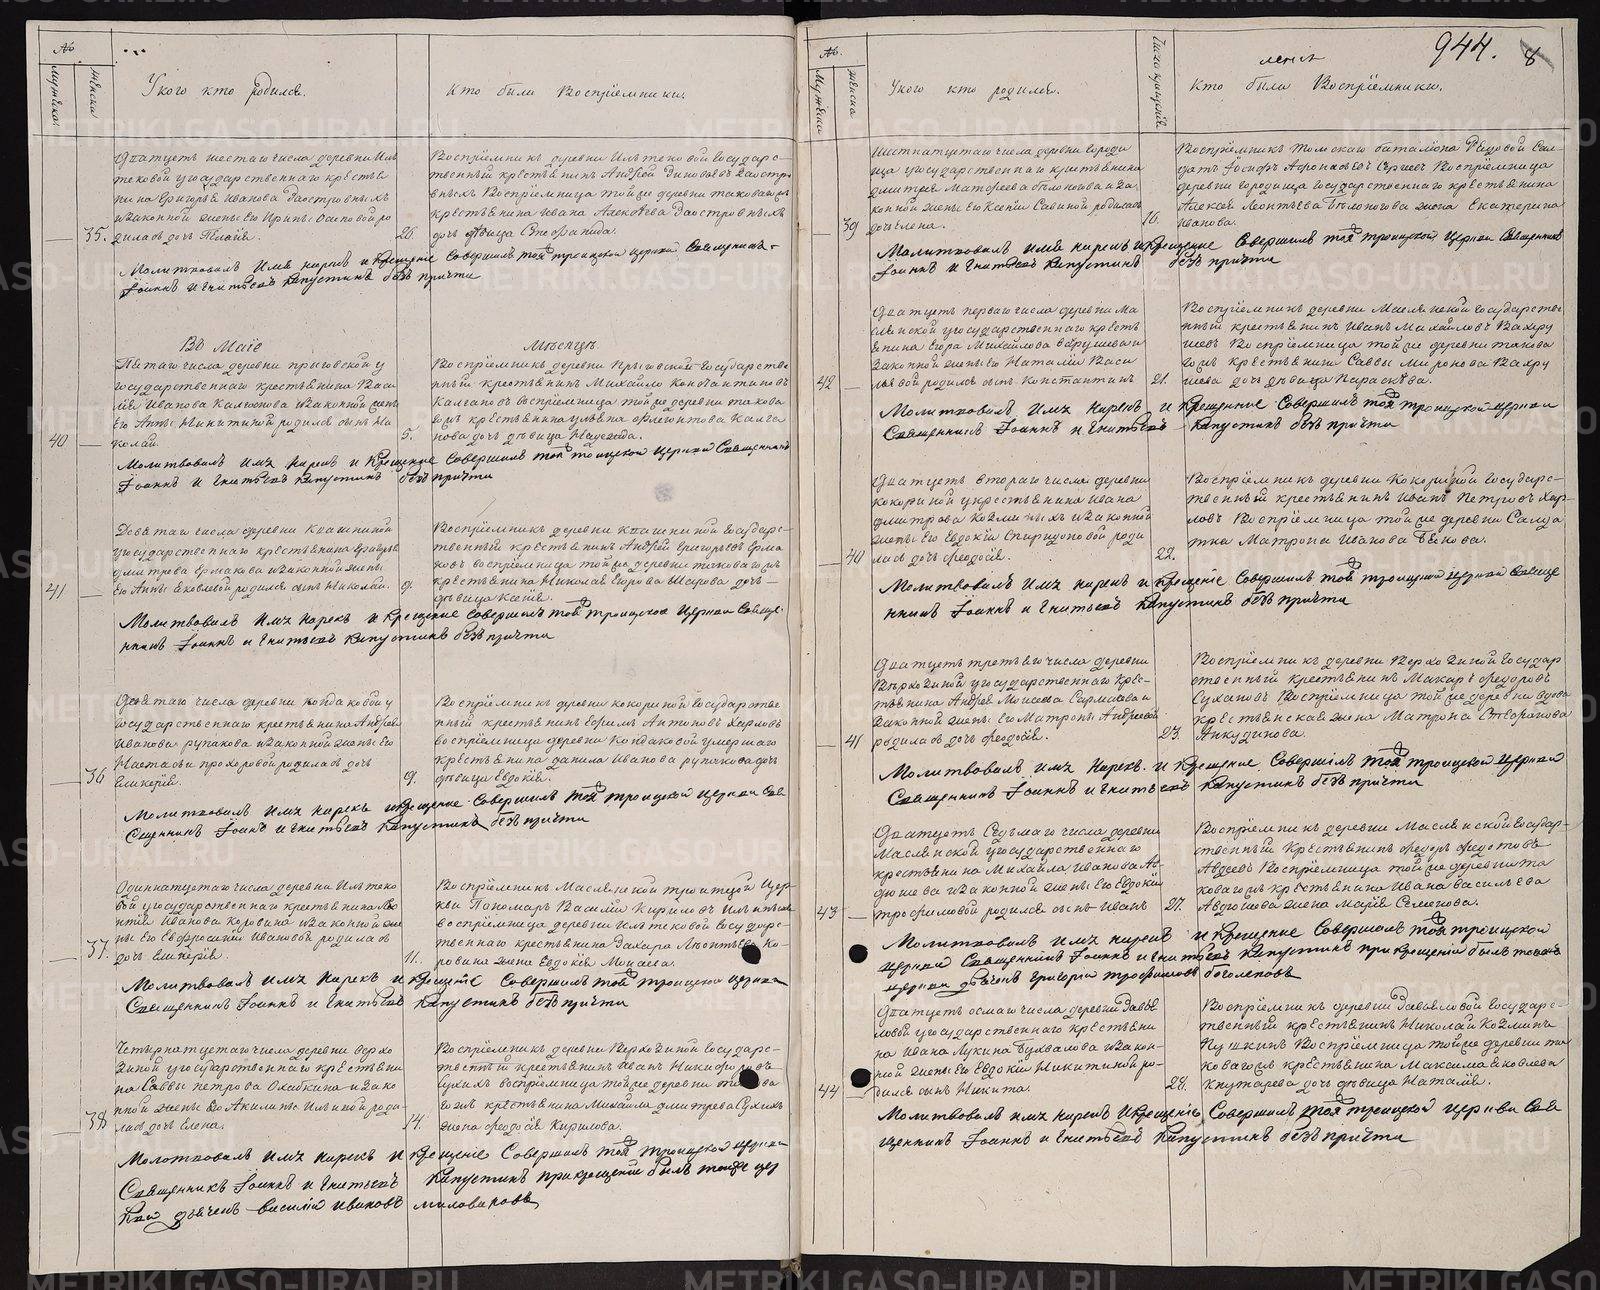 №
Мужска
Женска
У кого кто родился.
Кто были Воспрїемники.
Дватцеть шестаго числа деревни Иль
тековой у государственнаго крестья
нина Григорья Иванова Заостровныхъ
и законной жены его Ирины Осиповой ро
дилась дочь Пелагїя.
35.
26.
Воспрїемникъ деревни Ильтековой государс-
твенный крестьянинъ Андрей Зиновьевъ Заостро
вныхъ Воспрїемница той же деревни таковаго жъ
крестьянина Ивана Алексѣева Заостровныхъ
дочь дѣвица Стефанида.
Молитвовалъ Имя нарекъ и Крещение Совершилъ той троицкой церкви Священникъ
Іоаннъ Игнатьевъ Капустинъ безъ причта
Въ Маїе
Мѣсяцѣ
Пятаго числа деревни
государственнаго крестьянина Васи
лїя Иванова и законной жены
его Анны Никитиной родился сынъ Ни
колай.
40
5.
Воспрїемникъ деревни государстве
нный крестьянинъ Михайло Констаитиновъ
воспрїемница той же деревни такова
го жъ крестьянина
дочь дѣвица Надежда.
Молитвовалъ Имя нарекъ и Крещение Совершилъ той троицкой церкви Священникъ
Іоаннъ Игнатьевъ Капустинъ безъ причта
Девятаго числа деревни Квашниной
у государственнаго крестьянина Григорья
Дмитрева Ермакова и законной жены
его Анны Яковлевой родился сынъ Николай.
41
9.
Воспрїемникъ деревни Квашниной государс-
твенный крестьянинъ Андрей Григорьевъ Ерма
ковъ воспрїемница той же деревни таковаго жъ
крестьянина Николая Егорова Шарова дочь
дѣвица Ксенїя.
Молитвовалъ Имя нарекъ и Крещение Совершилъ той троицкой церкви Свяще-
нникъ Іоаннъ Игнатьевъ Капустинъ безъ причта
Девятаго числа деревни Кондаковой у
государственнаго крестьянина Андрея
Иванова Рупакова и законной жены его
Настасьи Прохоровой родилась дочь
Гликерїя.
36
9.
Воспрїемникъ деревни Кокориной государстве
нный крестьянинъ Ефремъ Антоновъ Харловъ
воспрїемница деревни Кондаковой умершаго
крестьянина Данила Иванова Рупакова дочь
дѣвица Евдокїя.
Молитвовалъ Имя нарекъ и Крещение Совершилъ той троицкой церкви Свя
щенникъ Іоаннъ Игнатьевъ Капустинъ безъ причта
Одиннатцетаго числа деревни Ильтеко
вой у государственнаго крестьянина Лео
нтїя Иванова Коровина и законной же
ны его Евфросинїи Ивановой родилась
дочь Гликерїя.
37.
11.
Воспрїемникъ Маслянской троитцкой Цер
кви Пономарь Василїй Кириловъ
воспрїемница деревни Ильтековой госудорс-
твеннаго крестьянина Захара Леонтьева Ко-
ровина жена Евдокїя Моисеева.
Молитвовалъ имя нарекъ и крещенїе Совершилъ той троицкой церкви
Священникъ Іоаннъ Игнатьевъ Капустинъ безъ причта
Четырнатцетаго числа деревни Верхо
зиной у государственнаго крестьяни
на Саввы Петрова Охабкина и зако
нной жены его Акилины Ильиной роди-
лась дочь Елена.
38
14.
Воспрїемникъ деревни Верхозиной государс-
твенный крестьянинъ Иванъ Никифоровъ
Сухихъ воспрїемница той же деревни такова
го жъ крестьянина Михайла Дмитрева Сухихъ
жена Феодосїя Кирилова.
Молитвовалъ имя нарекъ и крещенїе Совершилъ той троицкой церкви
Священникъ Іоаннъ Игнатьевъ Капустинъ при крещенїи былъ той же цер
кви дьячекъ Василїй Ивановъ Миловановъ
944.
8
№
Мужска
Женска
У кого кто родился.
Число крещенїя
Кто были Воспрїемники.
Шестнатцетаго числа деревни Городи
ща у государственнаго крестьянина
Дмитрея Матфеева Белоногова и за
конной жены его Ксенїи Савиной родилась
дочь Елена.
39
16.
Воспрїемникъ Томскаго баталїона Рядовой Сол-
датъ Іосифъ Афонасьевъ Сергеевъ Воспрїемница
деревни Городища государственнаго крестьянина
Алексея Леонтьева Белоногова жена Екатерина
Иванова.
Молитвовалъ Имя нарекъ и Крещение Совершилъ той троицкой церкви Священникъ
Іоаннъ Игнатьевъ Капустинъ безъ причта
Дватцеть перваго числа деревни Ма
слянской у государственнаго кресть
янина Егора Михайлова Вахрушева и
законной жены его Наталїи Васи
льевой родился сынъ Константинъ
42
21.
Воспрїемникъ деревни Маслянской государстве
нный крестьянинъ Иванъ Михайловъ Вахру
шевъ Воспрїемница той же деревни такова
го жъ крестьянина Саввы Миронова Вахру
шева дочь дѣвица Параскѣва.
Молитвовалъ Имя нарекъ и крещение Совершилъ той троицкой церкви
Священникъ Іоаннъ Игнатьевъ Капустинъ безъ причта
Дватцеть втораго числа деревни
Кокориной у крестьянина Ивана
Дмитрова Козминыхъ и законной
жены его Евдокїи Спиридоновой роди
лась дочь Феодосїя.
40
22.
Воспрїемникъ деревни Кокориной государс-
твенный крестьянинъ Иванъ Петровъ Хар-
ловъ Воспрїемница той же деревни Солда
тка Матрона Иванова Бѣкова.
Молитвовалъ Имя нарекъ и крещенїе Совершилъ той троицкой церкви Свяще
нникъ Іоаннъ Игнатьевъ Капустинъ безъ причта
Дватцеть третьяго числа деревни
Верхозиной у государственнаго крес-
тьянина Андрея Моисеева Сармасева и
законной жены его Матроны Андреевой
родилась дочь Феодосїя.
41
23.
Воспрїемникъ деревни Верхозиной государ
ственный крестьянинъ Макаръ Федоровъ
Сухановъ Воспрїемница той же деревни вдова
крестьянская жена Матрона Стефанова
Анкудинова.
Молитвовалъ имя нарекъ и Крещение Совершилъ той троицкой церкви
Священникъ Іоаннъ Игнатьевъ Капустинъ безъ причта
Дватцеть Седьмаго числа деревни
Маслянской у государственнаго
крестьянина Михайла Иванова Ав-
дюшева и законной жены его Евдокїи
Трофимовой родился сынъ Иванъ
43
27.
Воспрїемникъ деревни Маслянской государ-
ственный крестьянинъ Федоръ Федотовъ
Авдеевъ Воспрїемница той же деревни та
коваго жъ крестьянина Ивана Васильева
Авдюшева жена Марїя Семенова.
Молитвовалъ имя нарекъ и крещение Совершилъ той троицкой
церкви Священникъ Іоаннъ Игнатьевъ Капустинъ при крещенїи былъ той же
церкви дьячекъ Григорїй Трофимовъ Боголеповъ
Дватцеть осмаго числа деревни Завья
ловой у государственнаго крестьяни
на Ивана Лукина Бухвалова и закон-
ной жены его Евдокїи Никитиной ро-
дился сынъ Никита.
44
28.
Воспрїемникъ деревни Завьяловой государс-
твенный крестьянинъ Николай Козминъ
Пушкинъ Воспрїемница той же деревни та
коваго жъ крестьянина Максима Яковлева
дочь дѣвица Наталїя.
Молитвовалъ имя нарекъ и крещенїе Совершилъ той троицкой церкви Свя
щенникъ Іоаннъ Игнатьевъ Капустинъ безъ причта
METRIKI.GASO-URAL.RU